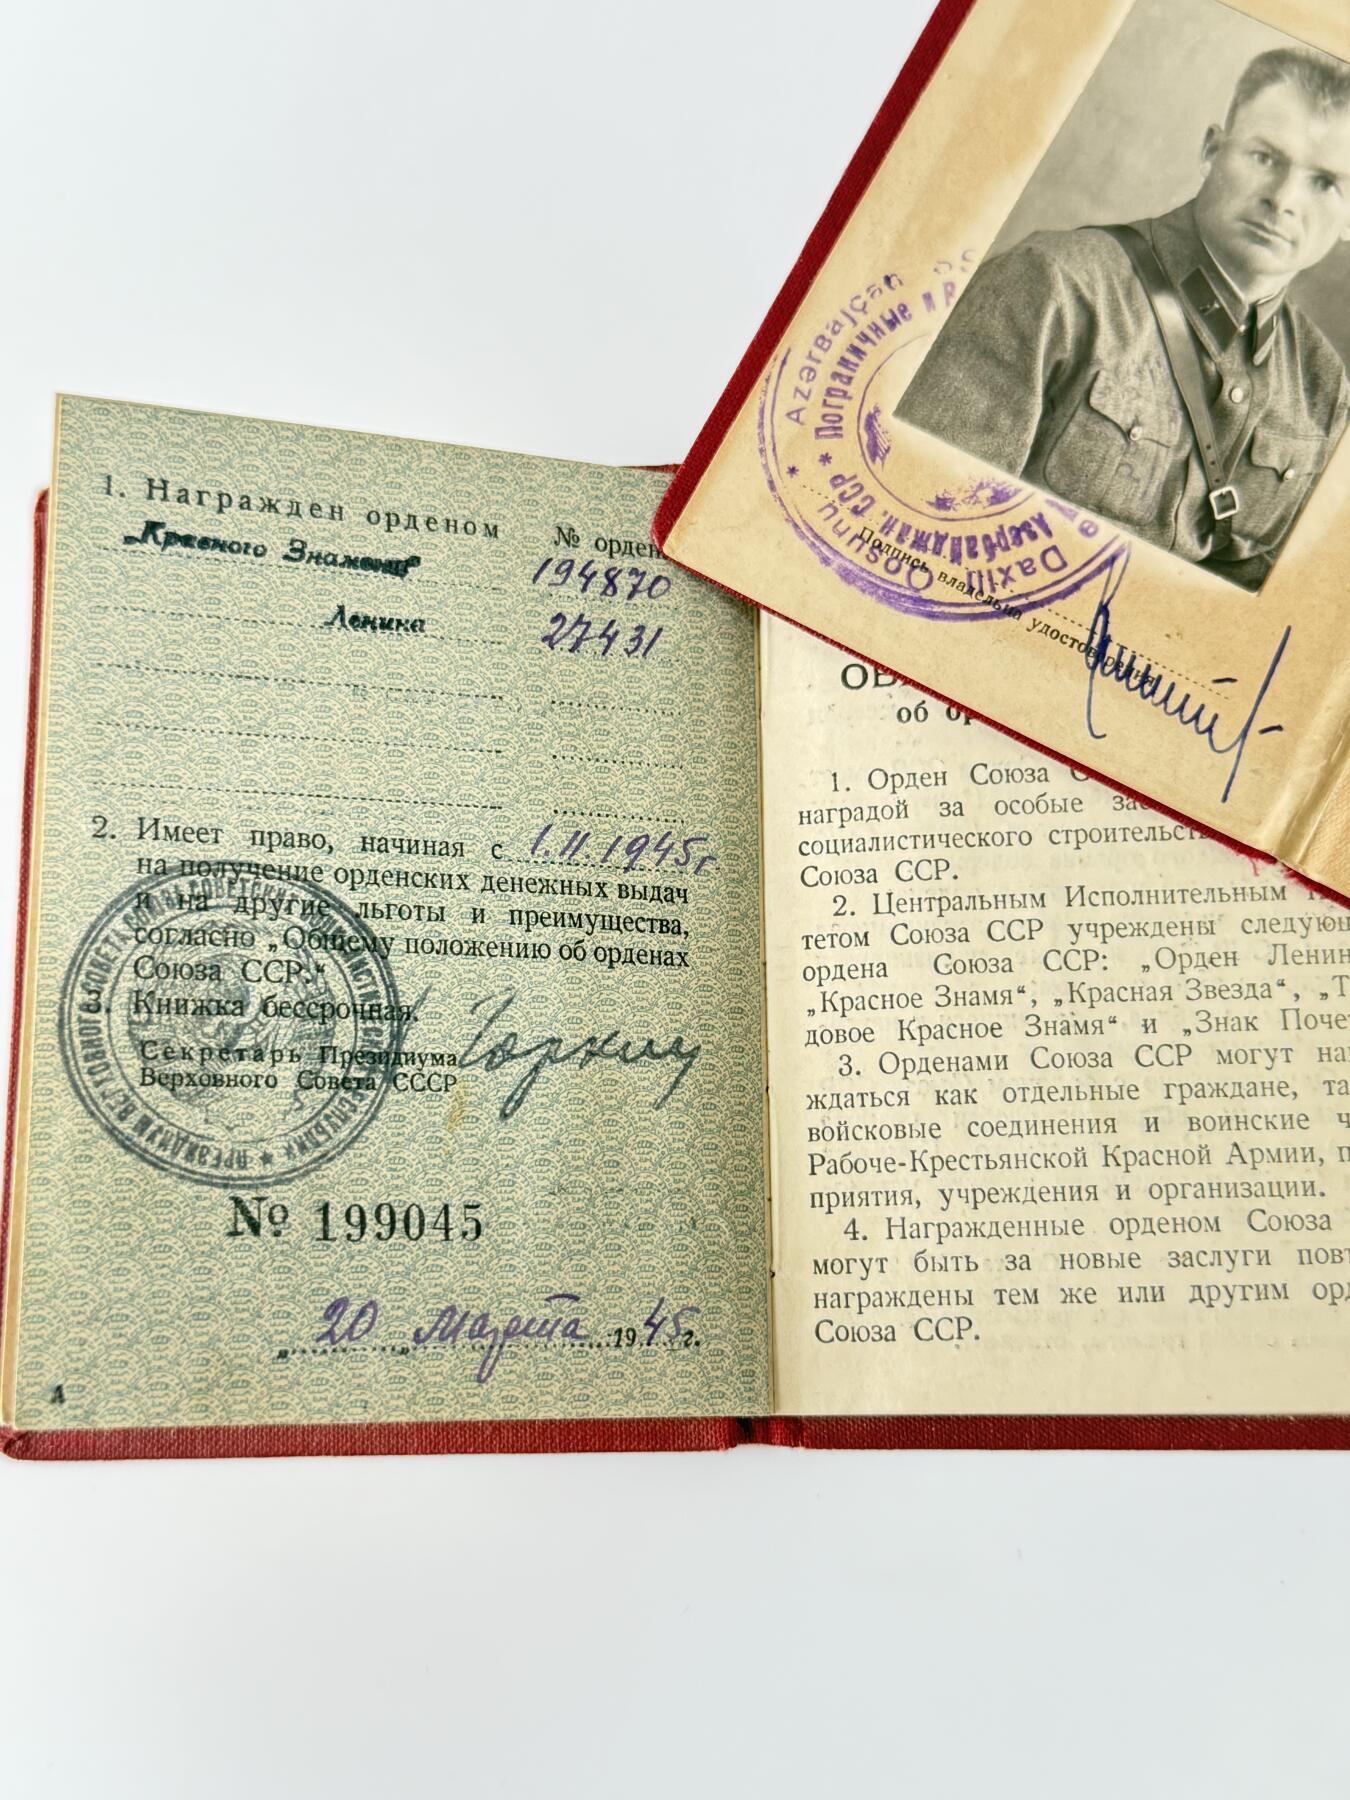 1. Награжден орденом № орден
„Красного Знамени“ 194870
Ленина 27431
2. Имеет право, начиная с 1.II.1945г
на получение орденских денежных выдач
и на другие льготы и преимущества,
согласно „Общему положению об орденах
Союза ССР.“
3. Книжка бессрочная.
Секретарь Президиума
Верховного Совета СССР
Горкин
ПРЕЗИДИУМ ВЕРХОВНОГО СОВЕТА
№ 199045
„20 „ Марта 1945 г.
А
Azərbajçan
Пограничные и В
Daxili
Qosunu
Азербайджан. ССР
Подпись владельца удостоверения
об ор
1. Орден Союза С
наградой за особые зас
социалистического строительст
Союза ССР.
2. Центральным Исполнительным
тетом Союза ССР учреждены следующ
ордена Союза ССР: „Орден Ленин
„Красное Знамя“, „Красная Звезда“, „Т
довое Красное Знамя“ и „Знак Поче
3. Орденами Союза ССР могут на
ждаться как отдельные граждане, та
войсковые соединения и воинские ч
Рабоче-Крестьянской Красной Армии, п
приятия, учреждения и организации.
4. Награжденные орденом Союза
могут быть за новые заслуги повт
награждены тем же или другим орд
Союза ССР.